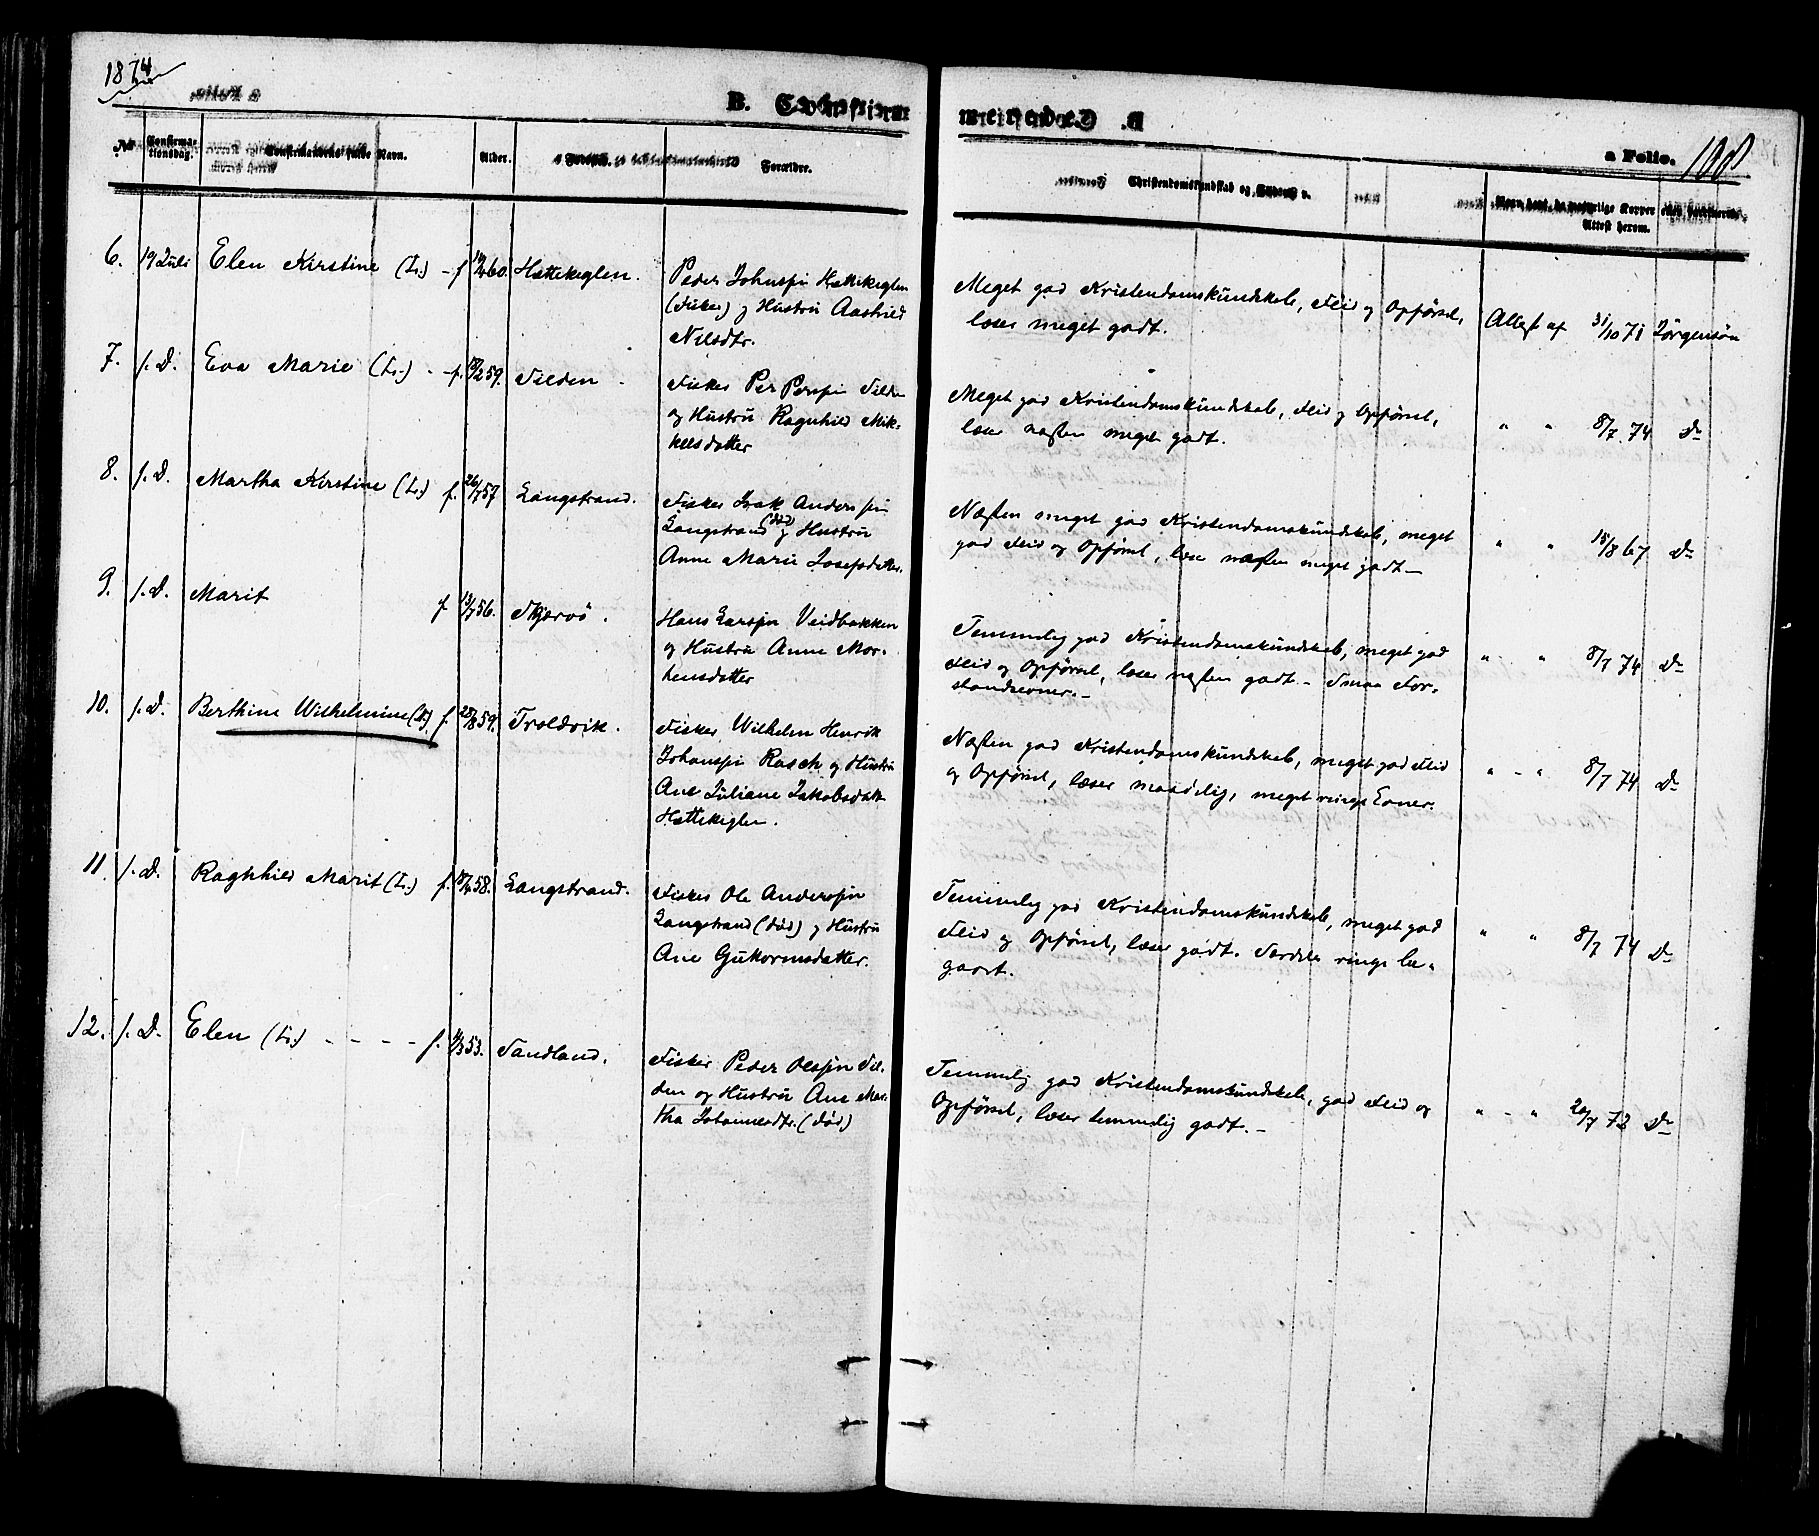 1874
B. Confirmerede
a Folio. 188
No
Confirma-
tionsdag.
Confirmandens fulde Navn.
Alder.
Forældre.
Christendomskundskab og
Attest herom.
6. 19 Juli Elen Kirstine (Ls.) - f 60. Hættekeglen.
Peder Johnssn Hættekeglen
(Fisker) og Hustru Aashild
Nilsdtr.
Meget god Kristendomskundskab, Flid og Opførsel,
læser meget godt.
Attest af 31/10 71 Jørgensøn
7. s. D. Eva Marie (Ls.) - f. 59. Silden
Fisker Per Perssn Silden
og Hustru Ragnhild Mik-
kelsdatter
Meget god Kristendomskundskab, Flid og Opførsel,
læser næsten meget godt.
" " 8/7 74 Do
8. s. D. Martha Kirstine (Ls.) f. 26/7 57 Langstrand.
Fisker Isak Anderssn
Langstrand (død) og Hustru
Anne Marie Josefsdatter.
Næsten meget god Kristendomskundskab, meget
god Flid og Opførsel, læser næsten meget godt -
" " 15/8 67 Do
9. s. D. Marit f 13/7 56. Skjervö.
Hans Larssn Veidbakken
og Hustru Anne Mor-
tensdatter
Temmelig god Kristendomskundskab, meget god
Flid og Opførsel, læser næsten godt - Smaa For-
standsevner. -
" " 8/7 74 Do
10. s. D. Berthine Wilhelmine (Ls.) f. 59. Troldvik.
Fisker Wilhelm Henrik
Johanssn Rasch og Hustru
Ane Juliane Jakobsdatt
Hættekeglen.
Næsten god Kristendomskundskab, meget god Flid
og Opførsel, læser maadelig, meget ringe Evner.
" - " 8/7 74 Do
11. s. D. Ragnhild Marit (Ls.) f. 58. Langstrand.
Fisker Ole Anderssn
Langstrand (død) og Hustru
Ane Gutormsdatter.
Temmelig god Kristendomskundskab, meget god
Flid og Opførsel, læser godt. Særdeles ringe be-
gavet.
" " 8/7 74 Do
12. s. D. Elen (Ls.) - - - - f. 53. Sandland.
Fisker Peder Olssn Sil-
den og Hustru Ane Mar-
tha Johannesdtr. (død)
Temmelig god Kristendomskundskab, god Flid og
Opførsel, læser temmelig godt. -
" - " 20/7 72 Do